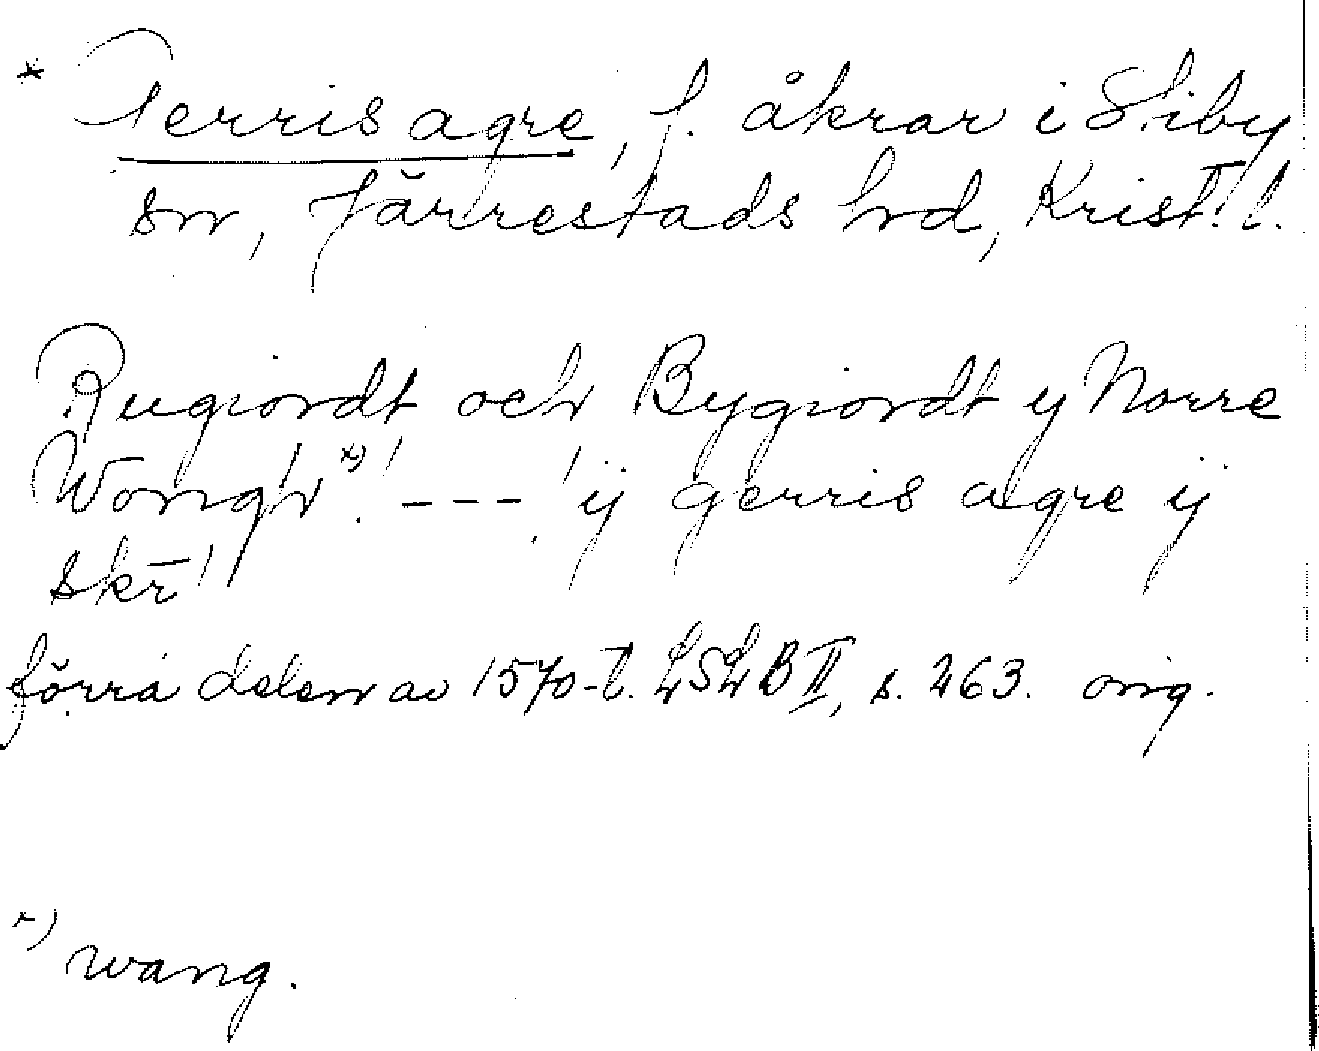 * Gerris agre, f. åkrar i Stiby
sn, Järrestads hd, Krist. l.
Rugiordt och Bygiordt y Norre
Wongh x) ! --- ! ij gerris agre ij
skr̄ !
förra delen av 1570-t. LSLB II, s. 263. orig.
x) wang.